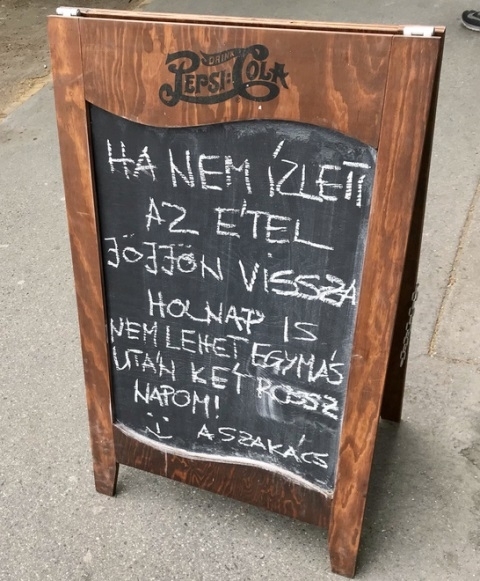 DRINK
PEPSI:COLA
HA NEM ÍZLETT
AZ ÉTEL
JÖJJÖN VISSZA
HOLNAP IS
NEM LEHET EGYMÁS
UTÁN KÉT ROSSZ
NAPOM!
:) A SZAKÁCS